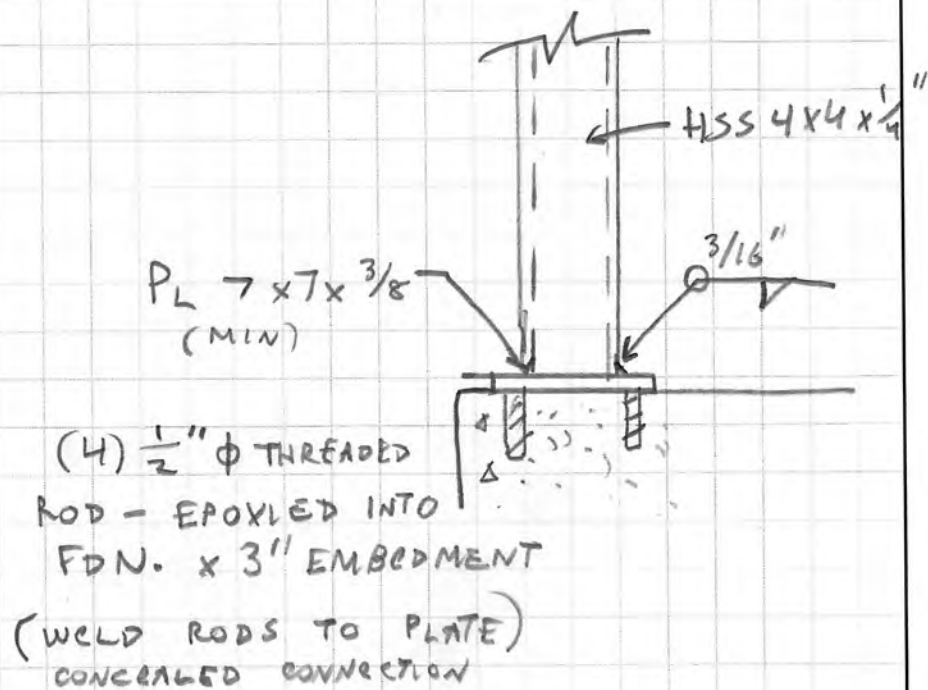 HSS 4x4x 1/4"
3/16"
PL 7x7x 3/8
(MIN)
(4) 1/2" ϕ THREADED
ROD - EPOXIED INTO
FDN. x 3" EMBEDMENT
(WELD RODS TO PLATE)
CONCEALED CONNECTION